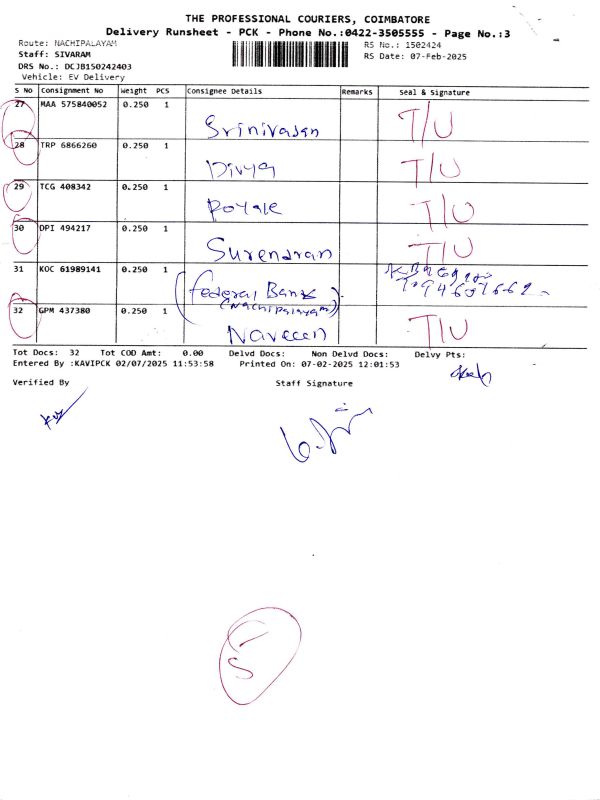 THE PROFESSIONAL COURIERS, COIMBATORE
Delivery Runsheet - PCK - Phone No.:0422-3505555 - Page No.:3
Route: NACHIPALAYAM
RS No.: 1502424
Staff: SIVARAM
RS Date: 07-Feb-2025
DRS No.: DCJB150242403
Vehicle: EV Delivery
S No Consignment No Weight PCS Consignee Details Remarks Seal & Signature
27 MAA 575840052 0.250 1 Srinivasan T/U
28 TRP 6866260 0.250 1 Divya T/U
29 TCG 408342 0.250 1 Royale T/U
30 DPI 494217 0.250 1 Surendran T/U
31 KOC 61989141 0.250 1 Federal Bank
(Nachipalayam)
32 GPM 437380 0.250 1 Naveen T/U
Tot Docs: 32 Tot COD Amt: 0.00 Delvd Docs: Non Delvd Docs: Delvy Pts:
Entered By :KAVIPCK 02/07/2025 11:53:58 Printed On: 07-02-2025 12:01:53
Verified By Staff Signature
5